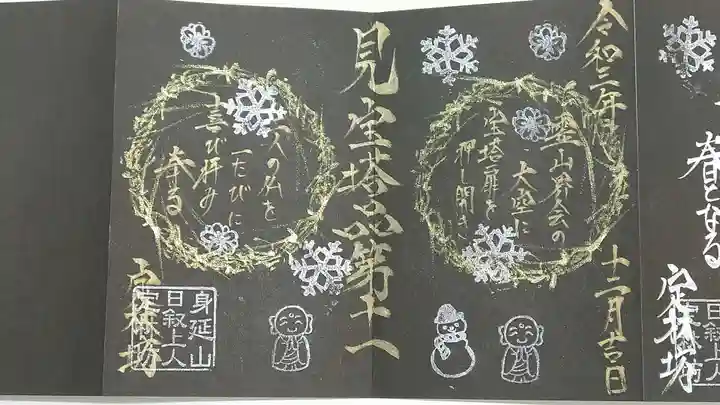 令和三年
十二月吉日
霊山界会の
大空に
宝塔扉を
押し開き
見宝塔品第十一
一人の仏を
一たびに
喜び拝み
奉る
定林坊
身延山
日叙上人
定林坊
春となる
定林坊